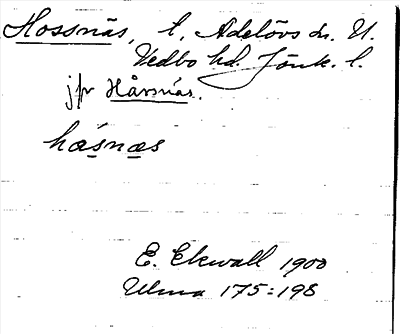 Hossnäs, t, Adelövs sn. N.
Vedbo hd. Jönk. l.
jfr Håvsnäs.
hæsnæs
E. Ekwall 1900
Ulma 175:198